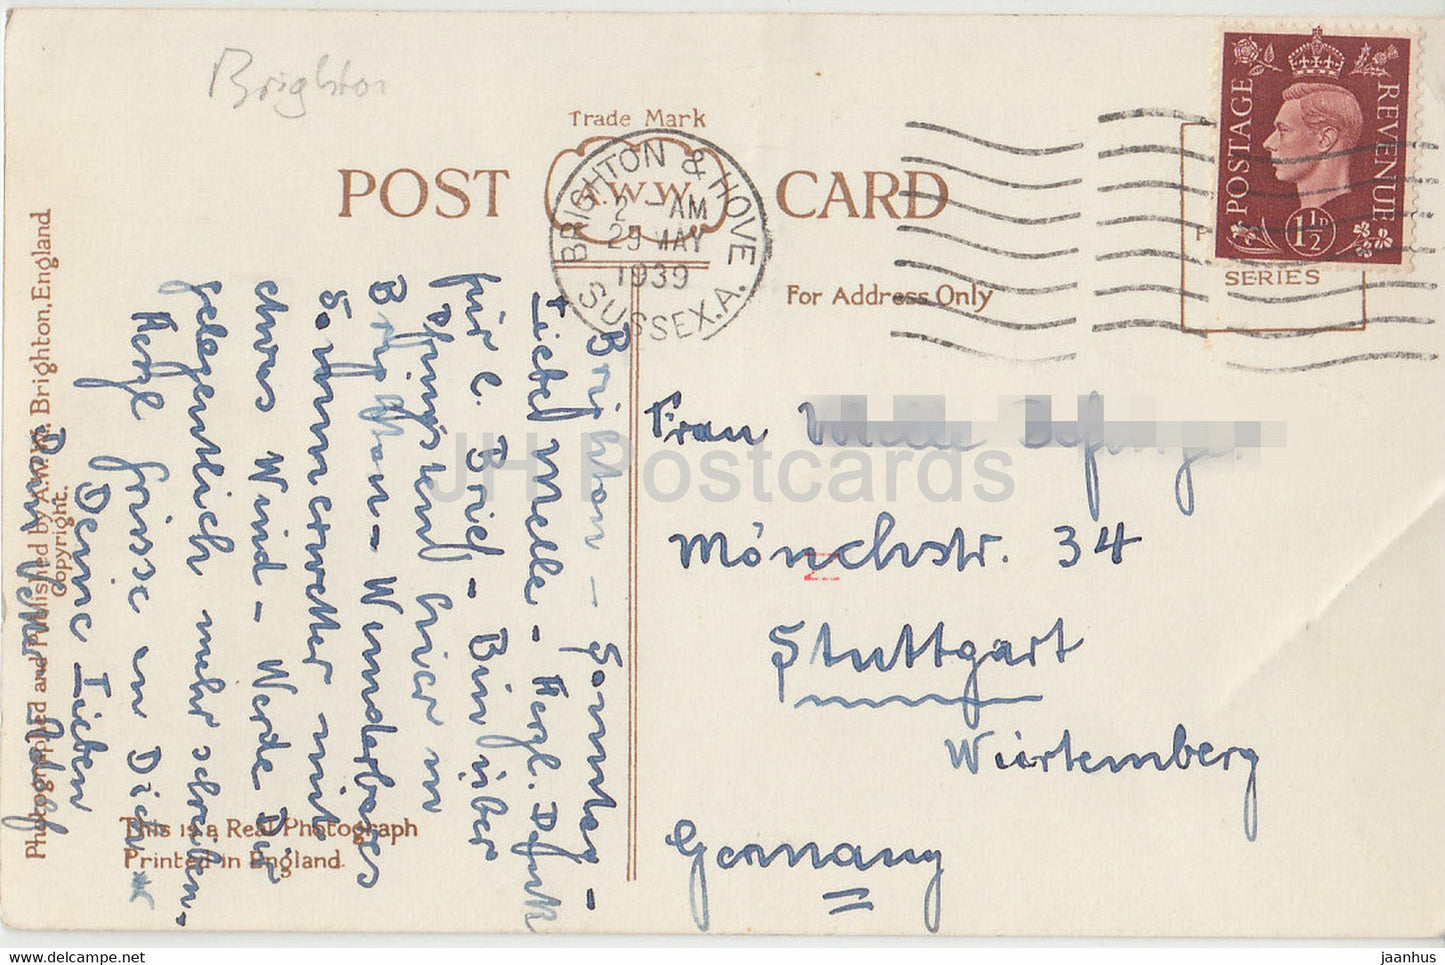 Brighton
Trade Mark
POST A.W.W. CARD
BRIGHTON & HOVE
2 - AM
29 MAY
1939
SUSSEX.A.
POSTAGE REVENUE
1½D
SERIES
For Address Only
Frau
Mönchstr. 34
Stuttgart
Württemberg
Germany
Brighton - Sonntag -
Liebe Melle - Herzl. Dank
für l. Brief - Bin über
Pfingsten hier in
Brighton - Wunderbares
Sommerwetter mit
etwas Wind - Werde Dir
gelegentlich mehr schreiben -
Herzl Grüsse an Dich &
Deine Lieben
Dein
Photographed and Published by A.W.W. Brighton, England
Copyright.
This is a Real Photograph
Printed in England.
JH Postcards
https://www.delcampe.net
jaanhus